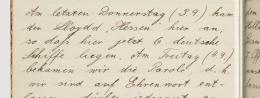 Am letzten Donnerstag (3.9.) kam
der Lloydd. „Hessen" hier an,
so daß hier jetzt 6 deutsche
Schiffe liegen. Am Freitag (4.9.)
bekamen wir die Parole, d. h.
wir sind auf Ehrenwort ent-